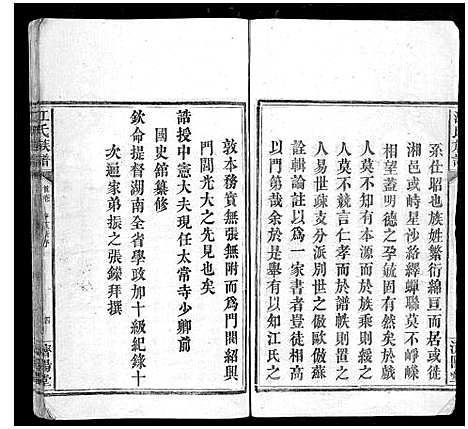 系仕昭也族姓繁衍綿亘而於三
湘邑或峙星沙絡繹蟬聯莫不崢嶸
相望蓋明德之孕毓固有然矣然人
莫不知有本源而於族乘則緩之
人莫不競言仁孝而於譜帙則置之
人易世疎支分派別世之倣歐倣蘇
詮輯論註以為一家書者豈徒相高
以門第哉余於是舉有以知江氏之
敦本務實無張無附而為門閥紹興
門閭光大之先見也矣
誥授中憲大夫現任太常寺少卿前
國史館纂修
欽命提督湖南全省學政加十級紀錄十
次通家弟振之張鏷拜撰
江氏族譜
四
濟陽堂